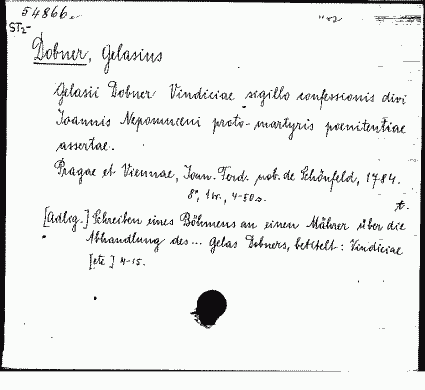 54866.
ST2-
Dobner, Gelasius
Gelasii Dobner Vindiciae sigillo confessionis divi
Joannis Nepomuceni proto-martyris poenitentiae
assertae.
Pragae et Viennae, Joan. Ferd. nob. de Schönfeld, 1784.
8°, 1 br., 4-50 s.
t.
[Adlig.] Schreiben eines Böhmens an einen Mährer über die
Abhandlung des... Gelas Dobners, betitelt: Vindiciae
[etc] 4-15.